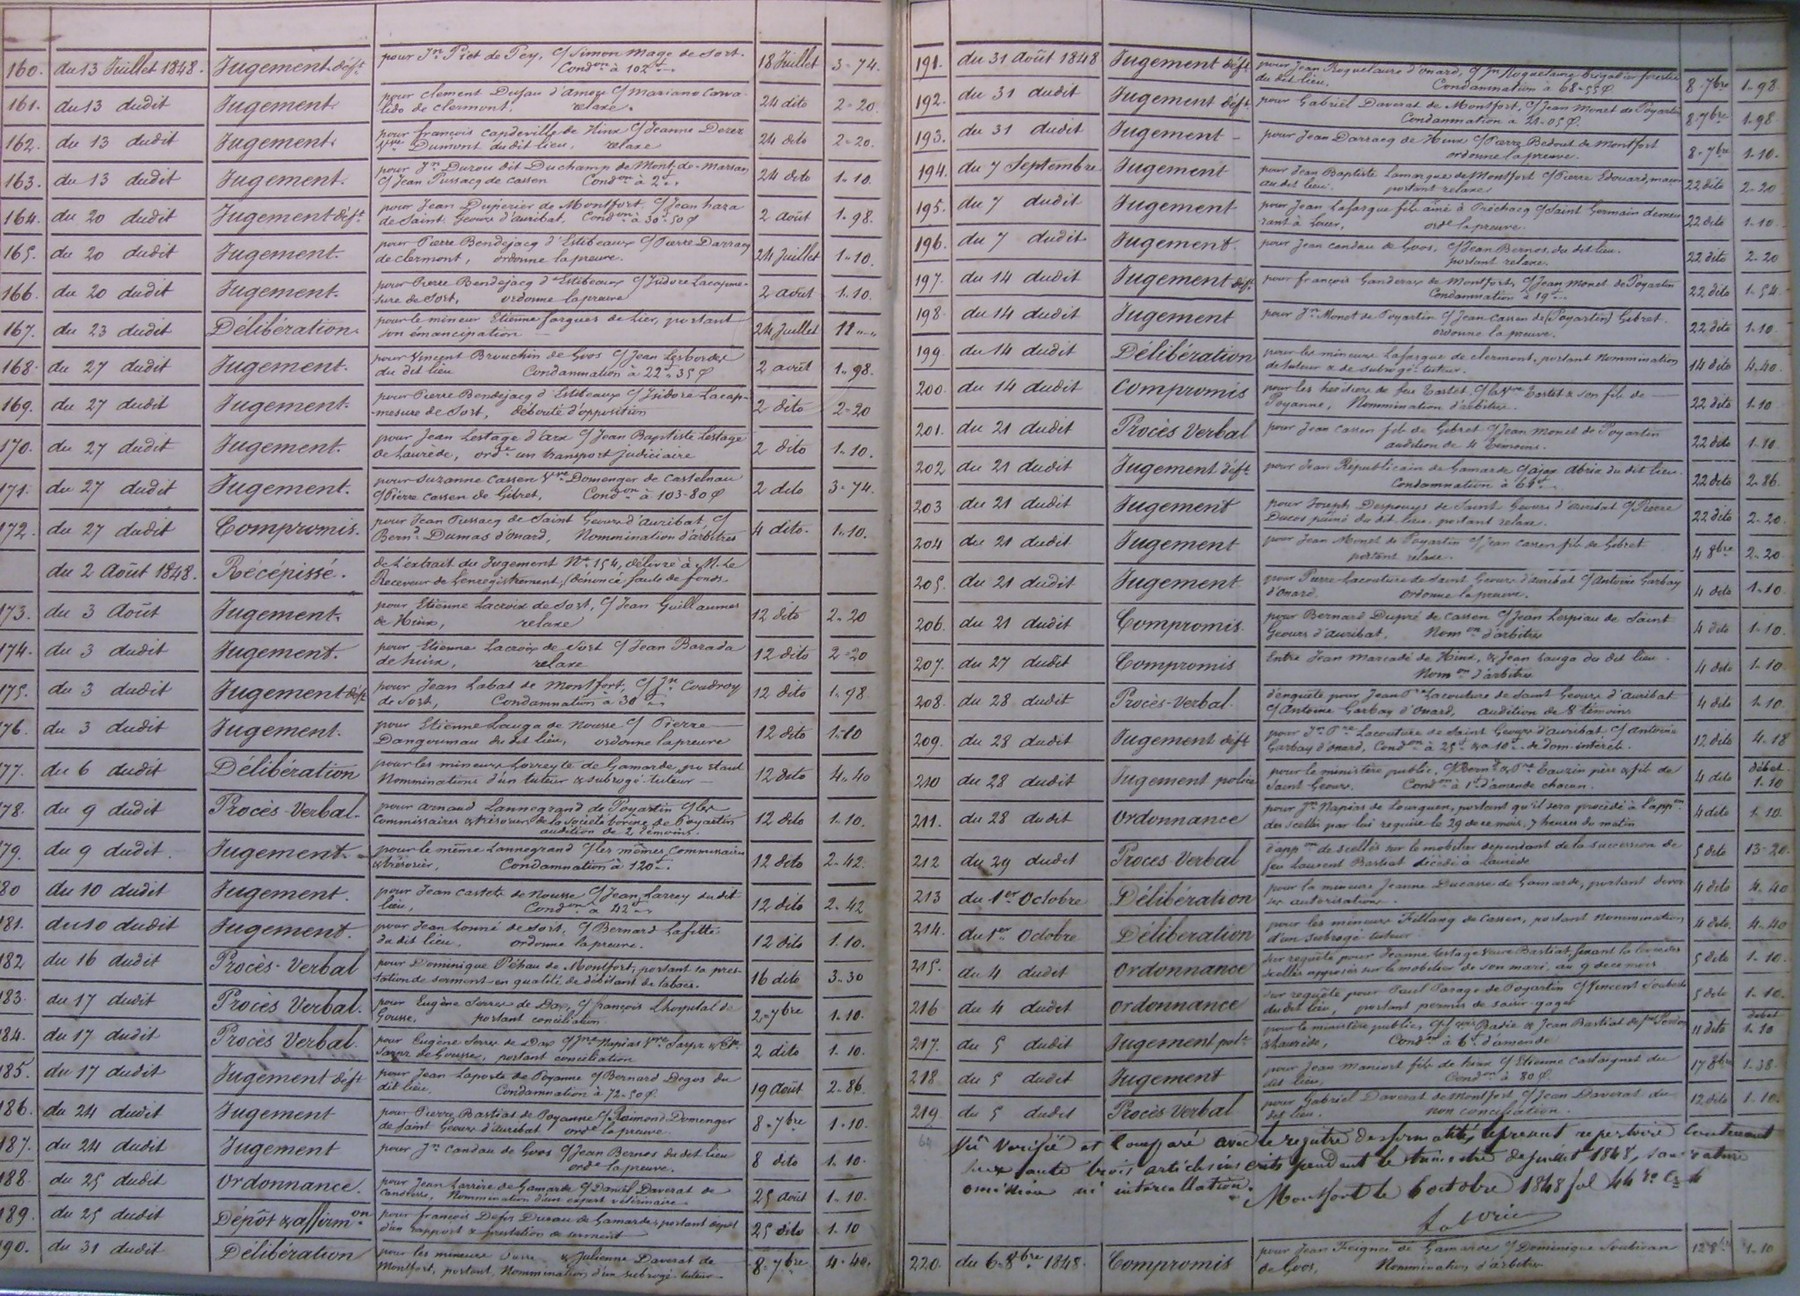 160. du 13 Juillet 1848. Jugement déft pour Jn Piet de Pey, c/ Simon Mage de Sort. 18 Juillet 3-74.
Condon à 102 f
161. du 13 dudit Jugement pour Clément Dufau d'Amou c/ Mariano 24 dito 2-20.
de Clermont. relaxe.
162. du 13 dudit Jugement. pour françois Capdeville de Hinx c/ Jeanne 24 dito 2-20.
Vve Dumont du dit lieu, relaxe
163. du 13 dudit Jugement. pour Jn Durou dit Duchamp de Mont-de-Marsan 24 dito 1-10.
c/ Jean Pussacq de Cassen Condon à 2 f
164. du 20 dudit Jugement déft pour Jean Duperier de Montfort, c/ Jean hara 2 août 1-98.
de Saint Geours d'auribat, Condon à 30-50 c
165. du 20 dudit Jugement. pour Pierre Bendejacq d'Estibeaux c/ Pierre Darracq 24 Juillet 1-10.
de Clermont, ordonne la preuve.
166. du 20 dudit Jugement. pour Pierre Bendejacq d'Estibeaux c/ Isidore Lacapme- 2 août 1-10.
sure de Sort, ordonne la preuve
167. du 23 dudit Délibération. pour le mineur Etienne fargues de Lier, portant 24 Juillet 11
son émancipation
168. du 27 dudit Jugement. pour Vincent Brouchin de Goos c/ Jean Lesbordes 2 août 1-98.
du dit lieu Condamnation à 22-35 c
169. du 27 dudit Jugement. pour Pierre Bendejacq d'Estibeaux c/ Isidore Lacap- 2 dito 2-20
mesure de Sort, débouté d'opposition
170. du 27 dudit Jugement. pour Jean Lestage d'arx c/ Jean Baptiste Lestage 2 dito 1-10.
de Laurede, orde un transport judiciaire
171. du 27 dudit Jugement. pour Suzanne Cassen Vve Domenger de Castelnau 2 dito 3-74.
c/ Pierre Cassen de Gibret, Condon à 103-80 c
172. du 27 dudit Compromis. pour Jean Pussacq de Saint Geours d'auribat, c/ 4 dito. 1-10.
Bernd Dumas d'onard, Nommination d'arbitres
du 2 Août 1848. Récépissé. de l'extrait du Jugement No 154, délivré à M. le
Receveur de l'enregistrement, dénoncé faute de fonds.
173. du 3 Août Jugement. pour Etienne Lacroix de Sort, c/ Jean Guillaumes 12 dito 2-20
de Hinx, relaxe
174. du 3 dudit Jugement. pour Etienne Lacroix de Sort c/ Jean Barada 12 dito 2-20
de hinx, relaxe
175. du 3 dudit Jugement déft pour Jean Labat de Montfort, c/ Jn Coudroy 12 dito 1-98.
de Sort, Condamnation à 30 f
176. du 3 dudit Jugement. pour Etienne Lauga de Nousse c/ Pierre 12 dito 1-10
Dangoumau du dit lieu, ordonne la preuve
177. du 6 dudit Délibération pour les mineurs Lorreyte de Gamarde, portant 12 dito 4-40
Nommination d'un tuteur & subrogé-tuteur
178. du 9 dudit Procès-Verbal. pour Arnaud Lannegrand de Poyartin c/ les 12 dito 1-10.
commissaires & trésorier de la société bovine de Poyartin
audition de 2 témoins.
179. du 9 dudit. Jugement. pour le même Lannegrand c/ les mêmes Commissaires 12 dito 2-42.
& trésorier, Condamnation à 120 f.
180 du 10 dudit Jugement. pour Jean Castets de Nousse c/ Jean Larrey du dit 12 dito 2-42
lieu, Condon à 42 f
181. du 10 dudit Jugement. pour Jean Lonné de Sort, c/ Bernard Lafitte 12 dito 1.10.
du dit lieu. ordonne la preuve.
182 du 16 dudit Procès-Verbal pour Dominique Péhau de Montfort, portant sa pres- 16 dito 3.30
tation de serment en qualité de débitant de tabacs.
183. du 17 dudit Procès Verbal. pour Eugène Serres de Dax, c/ françois Lhospital de 2-7bre 1.10.
Gousse, portant conciliation
184. du 17 dudit Procès Verbal. pour Eugène Serres de Dax c/ Napias Vve 2 dito 1.10.
de Gousse, portant conciliation
185. du 17 dudit Jugement déft pour Jean Laporte de Poyanne c/ Bernard Degos du 19 Août 2-86.
dit lieu. Condamnation à 72-50 c.
186. du 24 dudit Jugement pour Pierre Bastiat de Poyanne c/ Raimond Domenger 8-7bre 1-10.
de Saint Geours d'auribat orde la preuve
187. du 24 dudit Jugement pour Jn Candau de Goos c/ Jean Bernos du dit lieu 8 dito 1-10.
orde la preuve.
188. du 25 dudit Ordonnance. pour Jean Larrère de Gamarde c/ Daniel Daverat de 25 août 1-10.
Candresse, Nommination d'un expert vétérinaire.
189. du 25 dudit Dépôt & affirmon pour françois Defos Durau de Gamarde, portant dépôt 25 dito 1-10
d'un rapport & prestation de serment
190. du 31 dudit Délibération pour les mineurs & Julienne Daverat de 8-7bre 4-40.
Montfort, portant Nommination d'un subrogé tuteur
191. du 31 Août 1848 Jugement déft pour Jean Roquelaure d'onard, c/ Jn Roquelaure brigadier forestier 8-7bre 1-98
du dit lieu. Condamnation à 68-55 c
192. du 31 dudit Jugement déft. pour Gabriel Daverat de Montfort, c/ Jean Monet de Poyartin 8-7bre 1.98
Condamnation à 21-05 c.
193. du 31 dudit Jugement pour Jean Darracq de Hinx c/ Pierre Bedout de Montfort 8-7bre 1-10.
ordonne la preuve.
194. du 7 Septembre Jugement pour Jean Baptiste Lamarque de Montfort c/ Pierre Edouard, maçon 22 dito 2-20
au dit lieu. portant relaxe
195. du 7 dudit Jugement pour Jean Lafargue fils aîné à Préchacq c/ Saint Germain demeu- 22 dito 1-10.
rant à Louer, orde la preuve.
196. du 7 dudit. Jugement. pour Jean Candau de Goos, c/ Jean Bernos du dit lieu. 22 dito 2-20
portant relaxe.
197. du 14 dudit Jugement déft. pour françois Ganderax de Montfort, c/ Jean Monet de Poyartin 22 dito 1-54
Condamnation à 19 f
198. du 14 dudit Jugement pour Jn Monet de Poyartin c/ Jean Cassen de (Poyartin) Gibret. 22 dito 1-10.
ordonne la preuve.
199. du 14 dudit Délibération pour les mineurs Lafargue de Clermont, portant Nommination 14 dito 4-40.
de tuteur & de subrogé-tuteur.
200. du 14 dudit Compromis pour les héritiers de feu Tastet c/ la Vve Tastet & son fils de 22 dito 1-10
Poyanne, Nommination d'arbitre.
201. du 21 dudit Procès Verbal pour Jean Cassen fils de Gibret c/ Jean Monet de Poyartin 22 dito 1-10.
audition de 4 témoins.
202 du 21 dudit Jugement déft pour Jean Républicain de Gamarde c/ du dit lieu. 22 dito 2-86.
Condamnation à 68 f
203 du 21 dudit Jugement pour Joseph Despouys de Saint Geours d'auribat c/ Pierre 22 dito 2-20.
Ducos puîné du dit lieu portant relaxe.
204 du 21 dudit Jugement pour Jean Monet de Poyartin c/ Jean Cassen fils de Gibret 4 8bre 2-20
portant relaxe.
205. du 21 dudit Jugement pour Pierre Lacouture de Saint Geours d'auribat c/ Antoine Garbay 4 dito 1-10
d'onard. ordonne la preuve.
206. du 21 dudit Compromis. pour Bernard Dupré de Cassen c/ Jean Lespiau de Saint 4 dito 1-10.
Geours d'auribat. Nomon d'arbitre
207. du 27 dudit Compromis Entre Jean Marcadé de Hinx, & Jean Lauga du dit lieu. 4 dito 1-10
Nomon d'arbitre
208. du 28 dudit Procès-Verbal. d'enquête pour Jean Pre Lacouture de Saint Geours d'auribat 4 dito 1-10.
c/ Antoine Garbay d'Onard, audition de 8 témoins
209. du 28 dudit Jugement déft pour Jn Pre Lacouture de Saint Geours d'auribat c/ Antoine 12 dito 4-18
Garbay d'onard, Condon à 25 f & à 10 f de dom. intérêts.
210 du 28 dudit Jugement police pour le ministère public, c/ Bernd & Pre Lauzin père & fils de 4 dito débet
Saint Geours. Condon à 1 f d'amende chacun. 1-10
211. du 28 dudit Ordonnance pour Jn Napias de Lourquen, portant qu'il sera procédé à l'appon 4 dito 1-10.
des scellés par lui requise le 29 de ce mois, 7 heures du matin
212 du 29 dudit Procès Verbal d'appon de scellés sur le mobilier dépendant de la succession de 5 dito 13-20.
feu Laurent Bastiat décédé à Laurède
213 du 1er Octobre Délibération pour la mineure Jeanne Ducasse de Gamarde, portant diver- 4 dito 4-40
ses autorisations.
214. du 1er Octobre Délibération pour les mineurs de Cassen, portant nommination 4 dito 4-40
d'un subrogé tuteur
215. du 4 dudit Ordonnance sur requête pour Jeanne Lestage Veuve Bastiat, fixant la levée des 5 dito 1-10.
scellés apposés sur le mobilier de son mari, au 9 de ce mois
216 du 4 dudit Ordonnance sur requête pour Paul Farage de Poyartin c/ Vincent 5 dito 1-10.
du dit lieu, portant permis de saisir-gager
217. du 5 dudit Jugement polce pour le ministère public, c/ Badie & Jean Bastiat de 11 dito débet
& Laurède, Condon à 6 f d'amende 1-10
218. du 5 dudit Jugement pour Jean Manciet fils de hinx c/ Etienne Castaignet du 17 8bre 1-38.
dit lieu, Condon à 80 c.
219. du 5 dudit Procès Verbal pour Gabriel Daverat de Montfort c/ Jean Daverat du 12 dito 1-10.
dit lieu. non conciliation.
60 Vu Vérifié et Comparé avec le registre des formalités, le présent répertoire Contenant
soixante trois articles inscrits pendant le trimestre de Juillet 1848, sans rature
omission ni intercallation.
Montfort le 6 octobre 1848 fol 44
220. du 6-8bre 1848. Compromis pour Jean de Gamarde c/ Dominique Soubiran 12 8bre 1-10
de Goos, Nommination d'arbitre